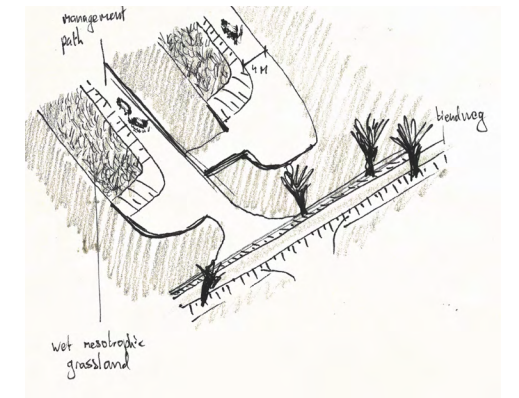 management
path
4M
tiendweg
wet mesotrophic
grassland